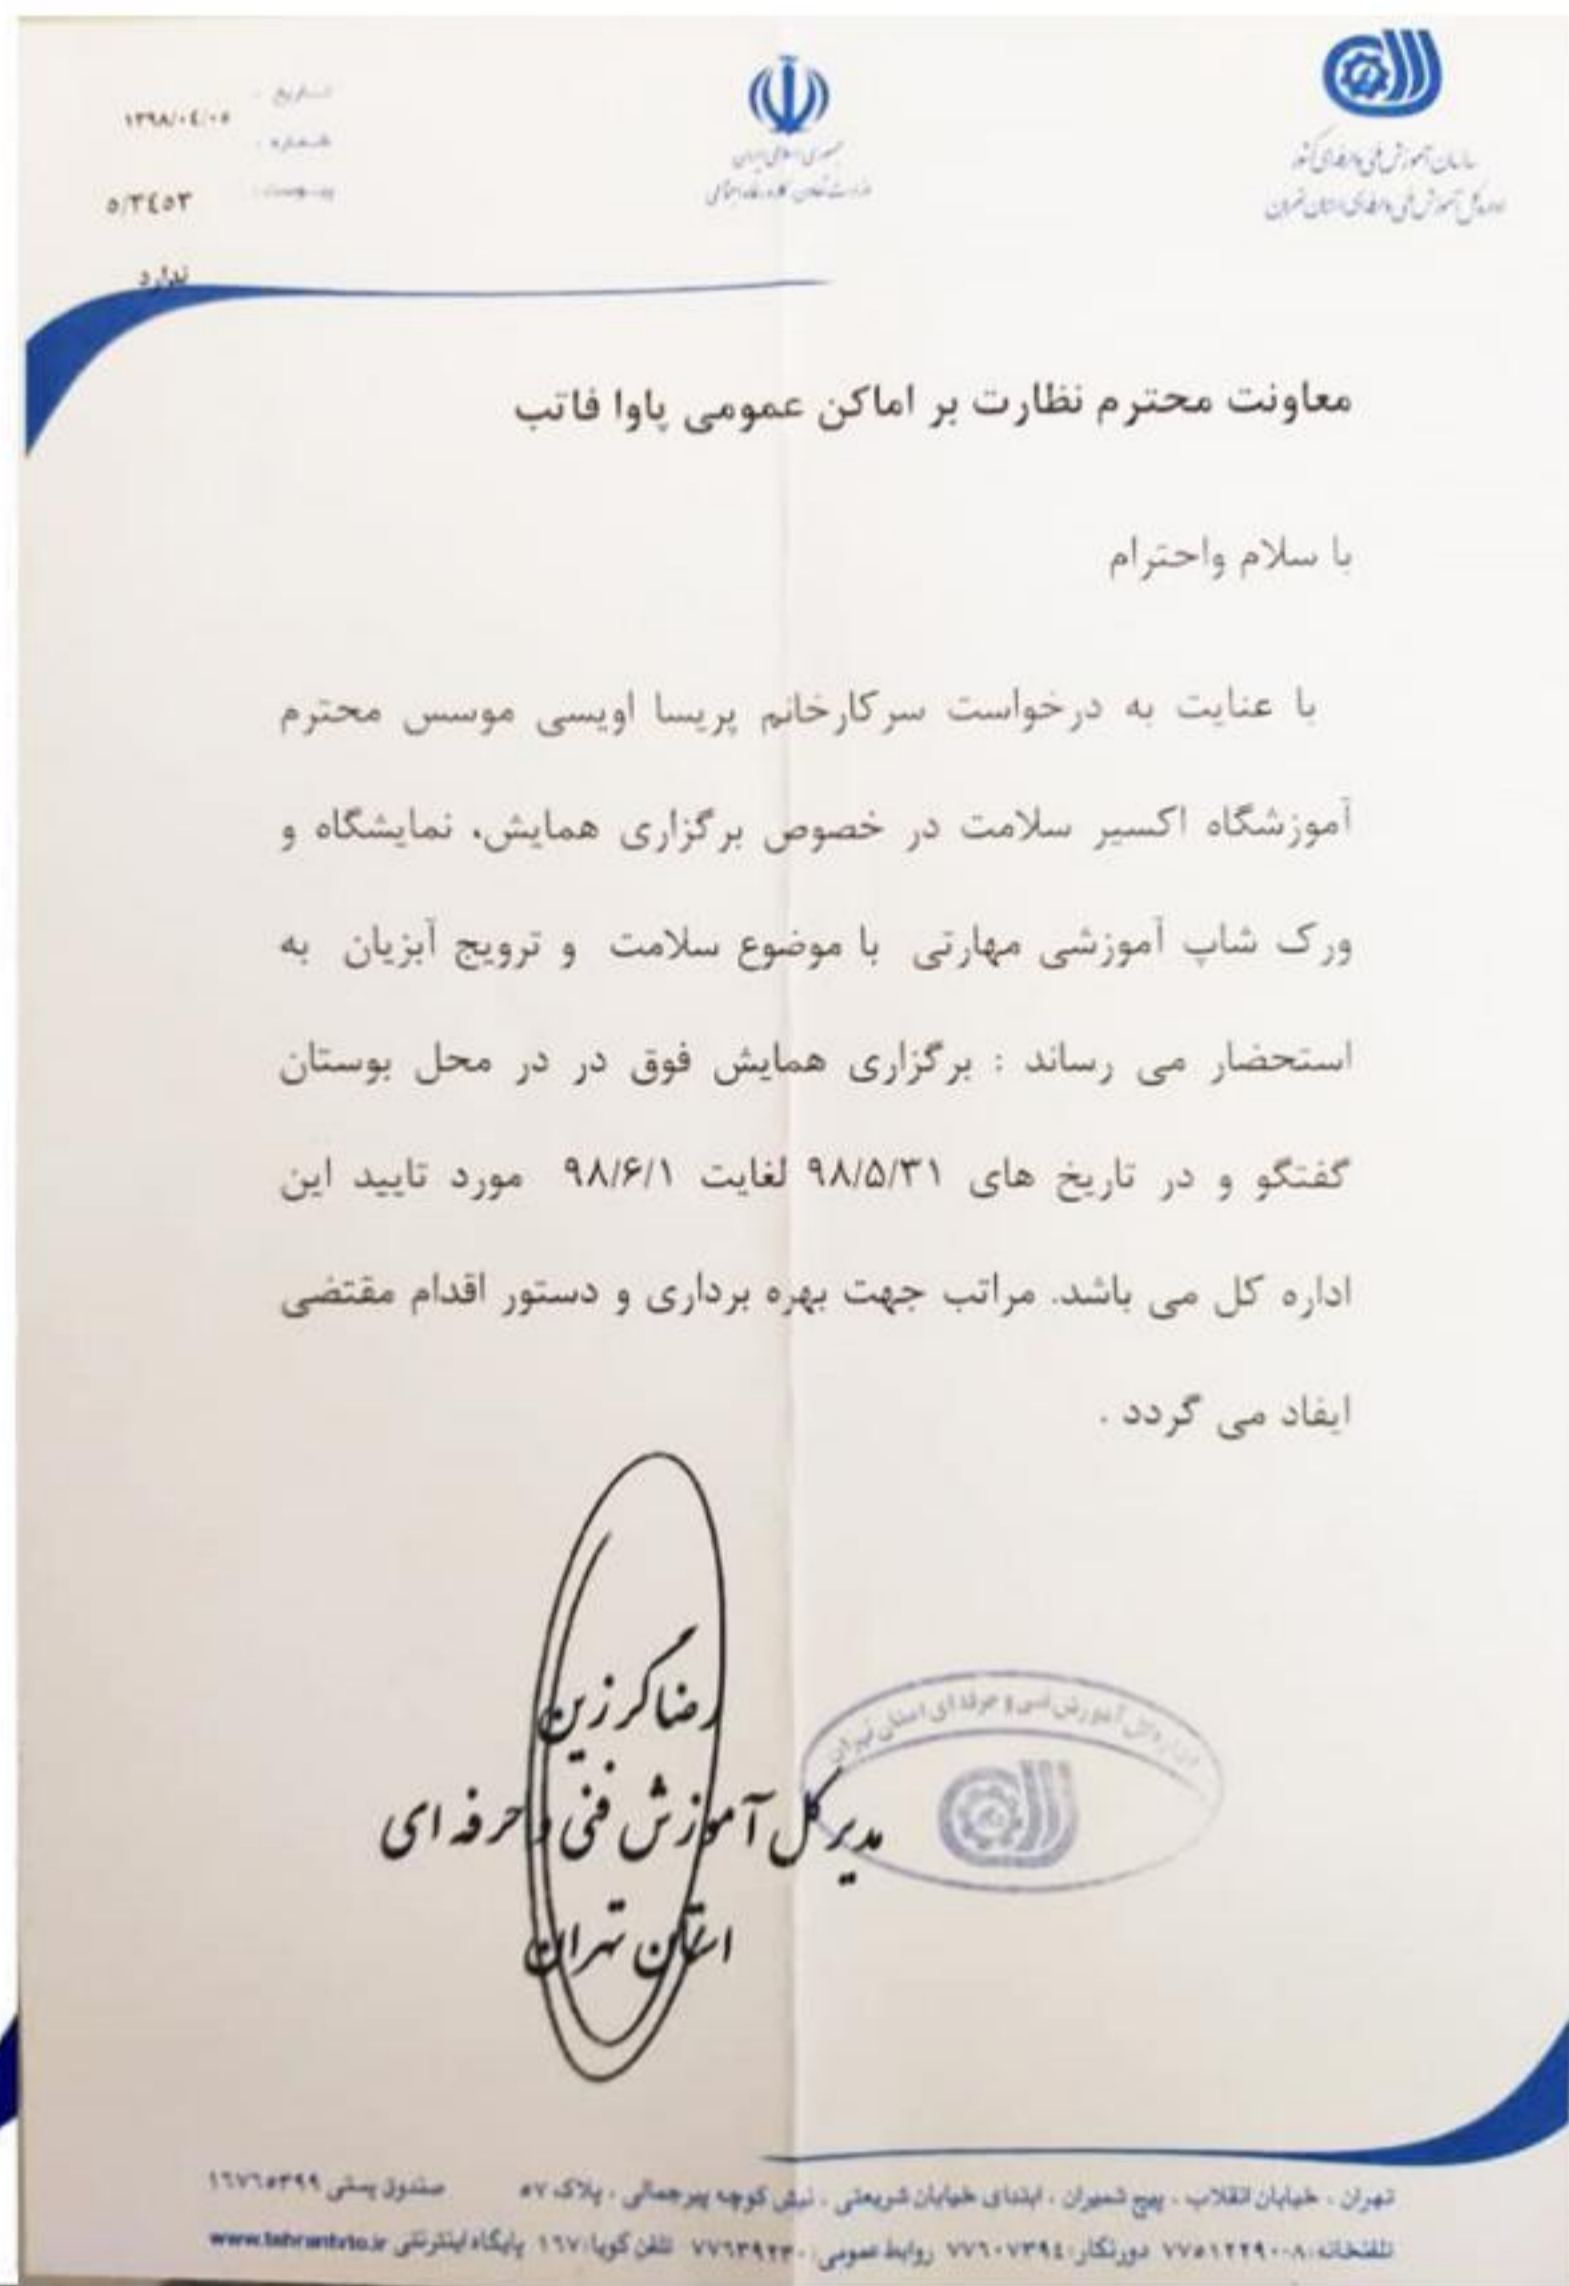 سازمان آموزش فنی و حرفه‌ای کشور
اداره کل آموزش فنی و حرفه‌ای استان تهران
جمهوری اسلامی ایران
وزارت تعاون، کار و رفاه اجتماعی
تاریخ :
۱۳۹۸/۰۴/۰۵
شماره :
۵/۳٤۵۳
پیوست :
ندارد
معاونت محترم نظارت بر اماکن عمومی پاوا فاتب
با سلام واحترام
با عنایت به درخواست سرکارخانم پریسا اویسی موسس محترم
آموزشگاه اکسیر سلامت در خصوص برگزاری همایش، نمایشگاه و
ورک شاپ آموزشی مهارتی با موضوع سلامت و ترویج آبزیان به
استحضار می رساند : برگزاری همایش فوق در در محل بوستان
گفتگو و در تاریخ های ۹۸/۵/۳۱ لغایت ۹۸/۶/۱ مورد تایید این
اداره کل می باشد. مراتب جهت بهره برداری و دستور اقدام مقتضی
ایفاد می گردد .
رضا گرزین
مدیر کل آموزش فنی و حرفه ای
استان تهران
اداره کل آموزش فنی و حرفه ای استان تهران
تهران . خیابان انقلاب . پیچ شمیران . ابتدای خیابان شریعتی . نبش کوچه پیرجمالی . پلاک ۵۷ صندوق پستی ۱٦۷٦۵۳۹۹
تلفنخانه: ۸-۷۷۵۱۲۲۹۰ دورنگار: ۷۷٦۰۷۳۹٤ روابط عمومی: ۷۷٦۳۹۲۳۰ تلفن گویا: ۱٦۷ پایگاه اینترنتی www.tehrantvto.ir